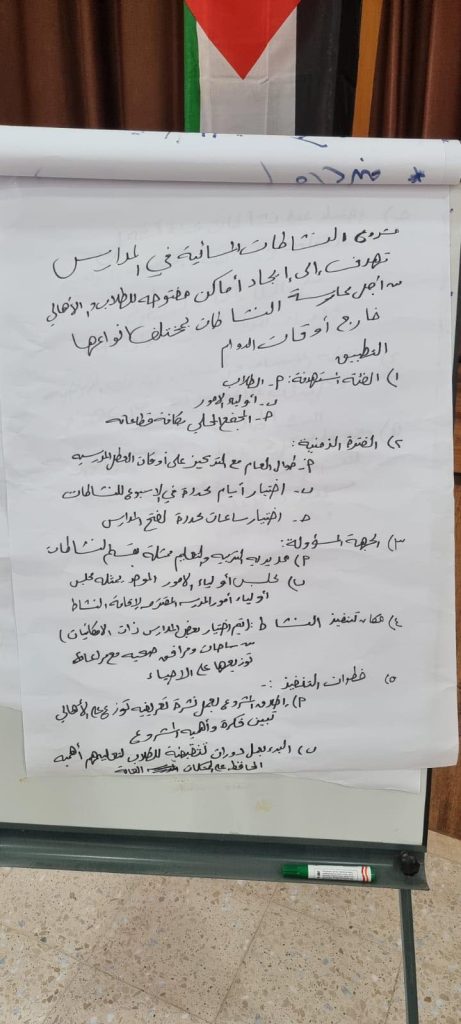 مشروع النشاطات المسائية في المدارس
تهدف إلى إيجاد أماكن مفتوحه للطلاب والأهالي
من أجل ممارسة النشاطات بمختلف انواعها
خارج أوقات الدوام
التطبيق
١) الفئة المستهدفة: ٢- الطلاب
ب- أولياء الامور
ج- المجتمع المحلي بكافة قطاعاته
٢) الفترة الزمنية:
٢- طوال العام مع التركيز على أوقات العطل المدرسيه
ب- اختيار أيام محددة في الاسبوع للنشاطات
ج- اختيار ساعات محددة لفتح المدارس
٣) الجهة المسؤولة:
٢) مديرية التربيه والتعليم ممثلة بقسم النشاطات
ب) مجلس أولياء الامور الموحد يمثله مجلس
أولياء أمور المدرسه لإقامة النشاط
٤) مكان تنفيذ النشاط: (يتم اختيار بعض المدارس ذات الامكانيات)
من ساحات ومرافق صحيه مع مراعاة
توزيعها على الاحياء
٥) خطوات التنفيذ :-
٢) اطلاق المشروع بعمل نشرة تعريفيه توزع على الأهالي
تبين فكرة وأهمية المشروع
ب) البدء بعمل دورات تثقيفية للطلاب لتعليمهم أهمية
الحافظ على الممتلكات العامة